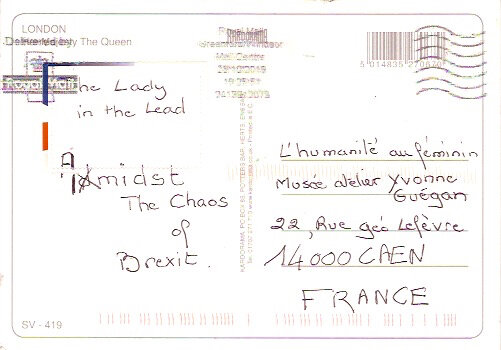 LONDON
Delivered by The Queen
Royal Mail
Royal Mail
Greenford/Windsor
Mail Centre
The Lady
in the Lead
Amidst
The Chaos
of
Brexit.
L'humanité au féminin
Musée atelier Yvonne
Guégan
22, Rue géo Lefèvre
14000 CAEN
FRANCE
5 014835 270630
SV - 419